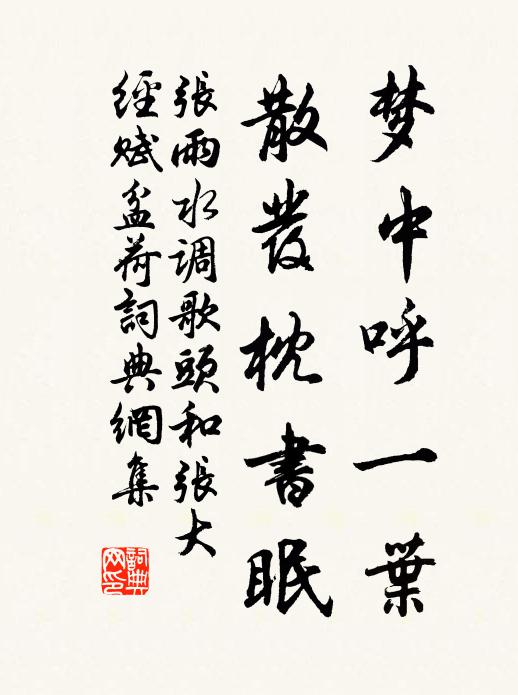 梦中呼一葉
散发枕書眠
張雨水调歌頭和張大
經赋盆荷詞典網集
詞典
网印